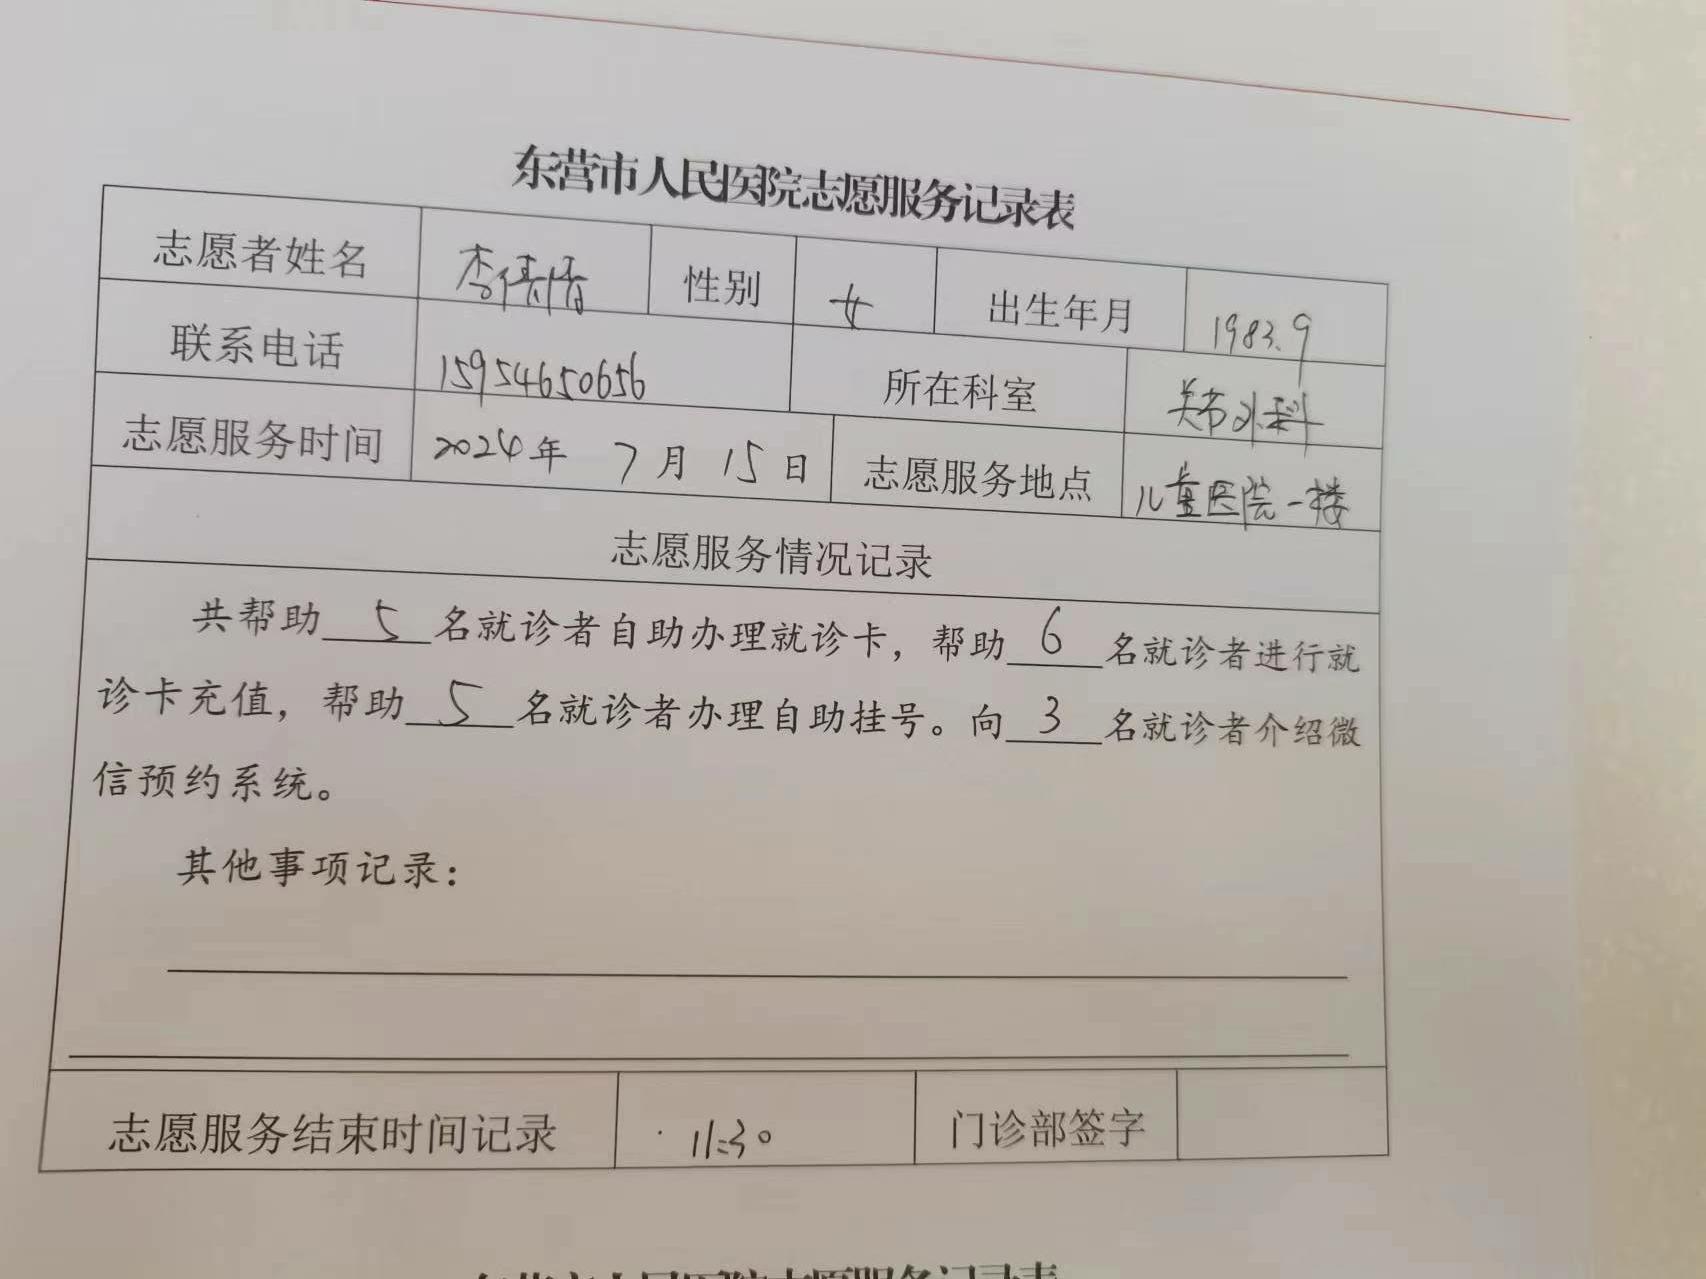 东营市人民医院志愿服务记录表
志愿者姓名 李倩倩 性别 女 出生年月 1983.9
联系电话 15954650656 所在科室 关节外科
志愿服务时间 2024年 7月 15日 志愿服务地点 儿童医院一楼
志愿服务情况记录
共帮助 5 名就诊者自助办理就诊卡，帮助 6 名就诊者进行就
诊卡充值，帮助 5 名就诊者办理自助挂号。向 3 名就诊者介绍微
信预约系统。
其他事项记录：
志愿服务结束时间记录 11:30 门诊部签字
东营市人民医院志愿服务记录表